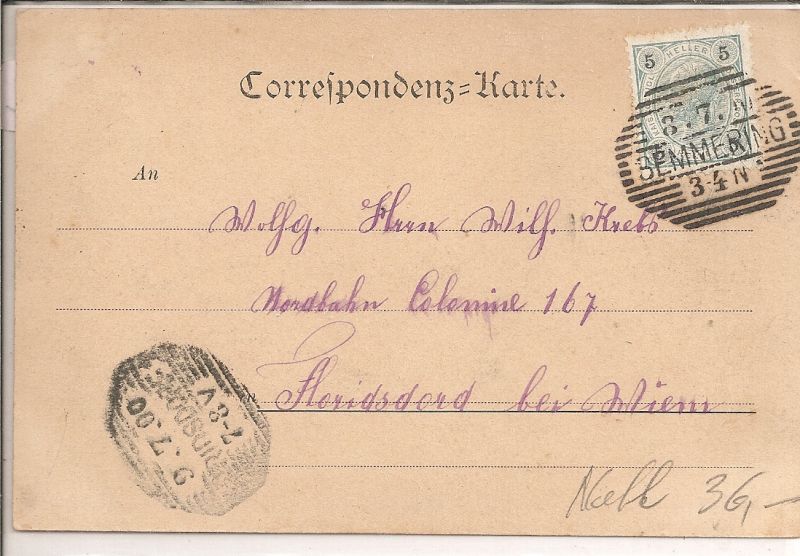 Correspondenz-Karte.
5 HELLER 5
8.7.
SEMMERING
3-4 N
An
Wolhg. Herrn Wilh. Krebs
Nordbahn Colonine 167
Floridsdord bei Wienn
7-8 V
9.7.00
36,-